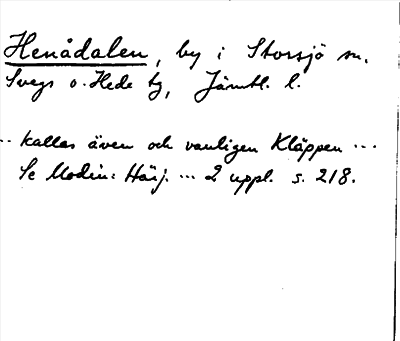 Henådalen, by i Storsjö sn.
Svegs o. Hede tg, Jämtl. l.
.. kallas även och vanligen Kläppen ...
Se Modin: Härj. ... 2 uppl. s. 218.